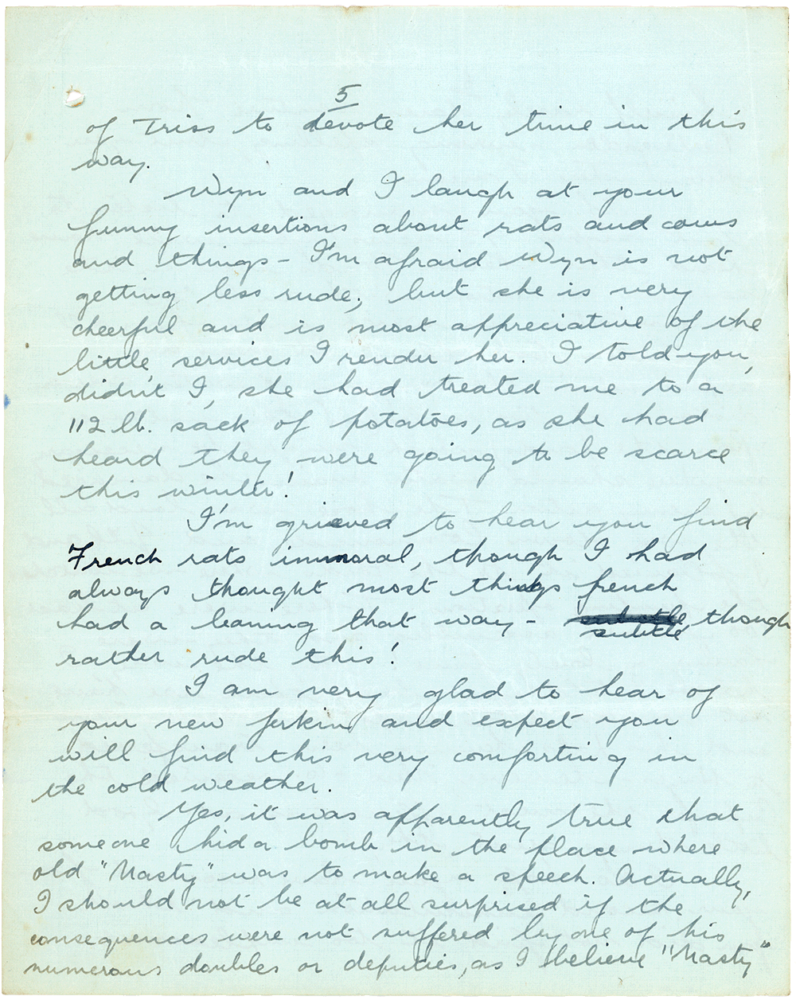 5
of Triss to devote her time in this
way.
Wyn and I laugh at your
funny insertions about rats and cows
and things - I'm afraid Wyn is not
getting less rude, but she is very
cheerful and is most appreciative of the
little services I render her. I told you,
didn't I, she had treated me to a
112 lb. sack of potatoes, as she had
heard they were going to be scarce
this winter!
I'm grieved to hear you find
French rats immoral, though I had
always thought most things french
had a leaning that way - subtle, though
rather rude this!
I am very glad to hear of
your new jerkin and expect you
will find this very comforting in
the cold weather.
Yes, it was apparently true that
someone hid a bomb in the place where
old "Nasty" was to make a speech. Actually,
I should not be at all surprised if the
consequences were not suffered by one of his
numerous doubles or deputies, as I believe "Nasty"